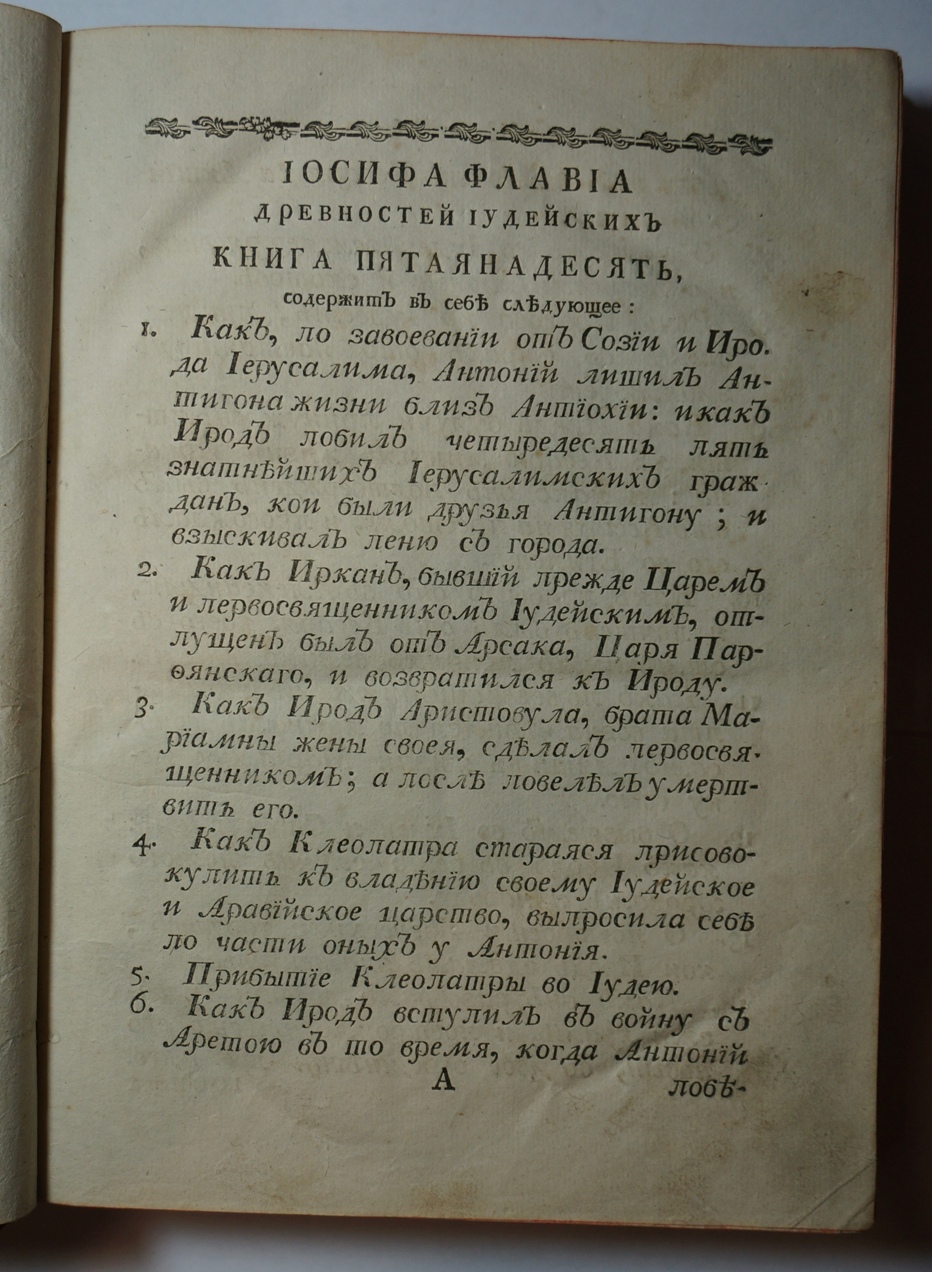 ІОСИФА ФЛАВІА
ДРЕВНОСТЕЙ ІУДЕЙСКИХЪ
КНИГА ПЯТАЯНАДЕСЯТЬ,
содержитЪ вЪ себѣ слѣдующее :
1. КакЪ, по завоеванїи отЪ Созїи и Иро.
да Іерусалима, Антонїй лишилЪ Ан-
тигона жизни близЪ Антїохїи: и какЪ
ИродЪ побилЪ четыредесять пять
знатнѣйшихЪ ІерусалимскихЪ граж-
данЪ, кои были друзья Антигону ; и
взыскивалЪ пеню сЪ города.
2. КакЪ ИрканЪ, бывшїй прежде ЦаремЪ
и первосвященникомЪ ІудейскимЪ, от-
пущенЪ былЪ отЪ Арсака, Царя Пар-
ѳянскаго, и возвратился кЪ Ироду.
3. КакЪ ИродЪ Аристовула, брата Ма-
рїамны жены своея, сдѣлалЪ первосвя-
щенникомЪ; а послѣ повелѣлЪ умерт-
вить его.
4. КакЪ Клеопатра стараяся присово-
купить кЪ владѣнїю своему Іудейское
и Аравїйское царство, выпросила себѣ
по части оныхЪ у Антонїя.
5. Прибытїе Клеопатры во Іудею.
6. КакЪ ИродЪ вступилЪ вЪ войну сЪ
Аретою вЪ то время, когда Антонїй
А
повѣ-